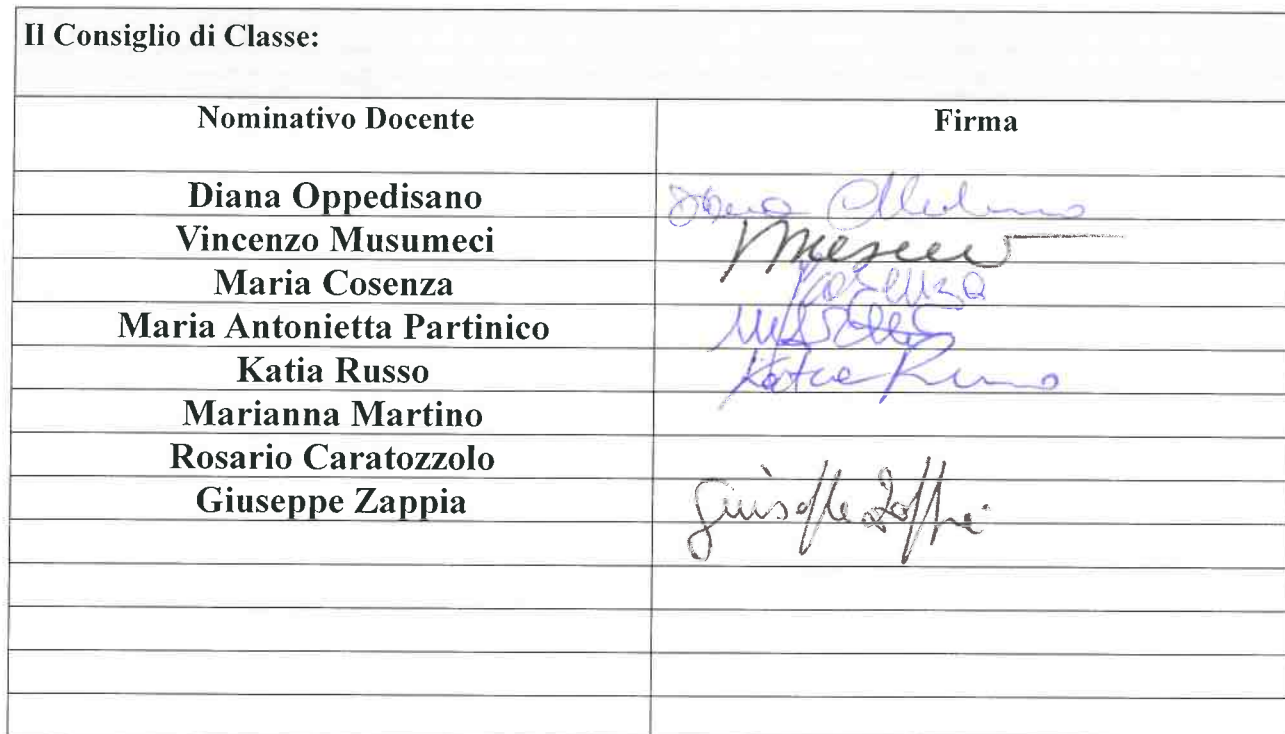 Il Consiglio di Classe:
Nominativo Docente Firma
Diana Oppedisano
Vincenzo Musumeci
Maria Cosenza Cosenza
Maria Antonietta Partinico
Katia Russo Katia Russo
Marianna Martino
Rosario Caratozzolo
Giuseppe Zappia Giuseppe Zappia